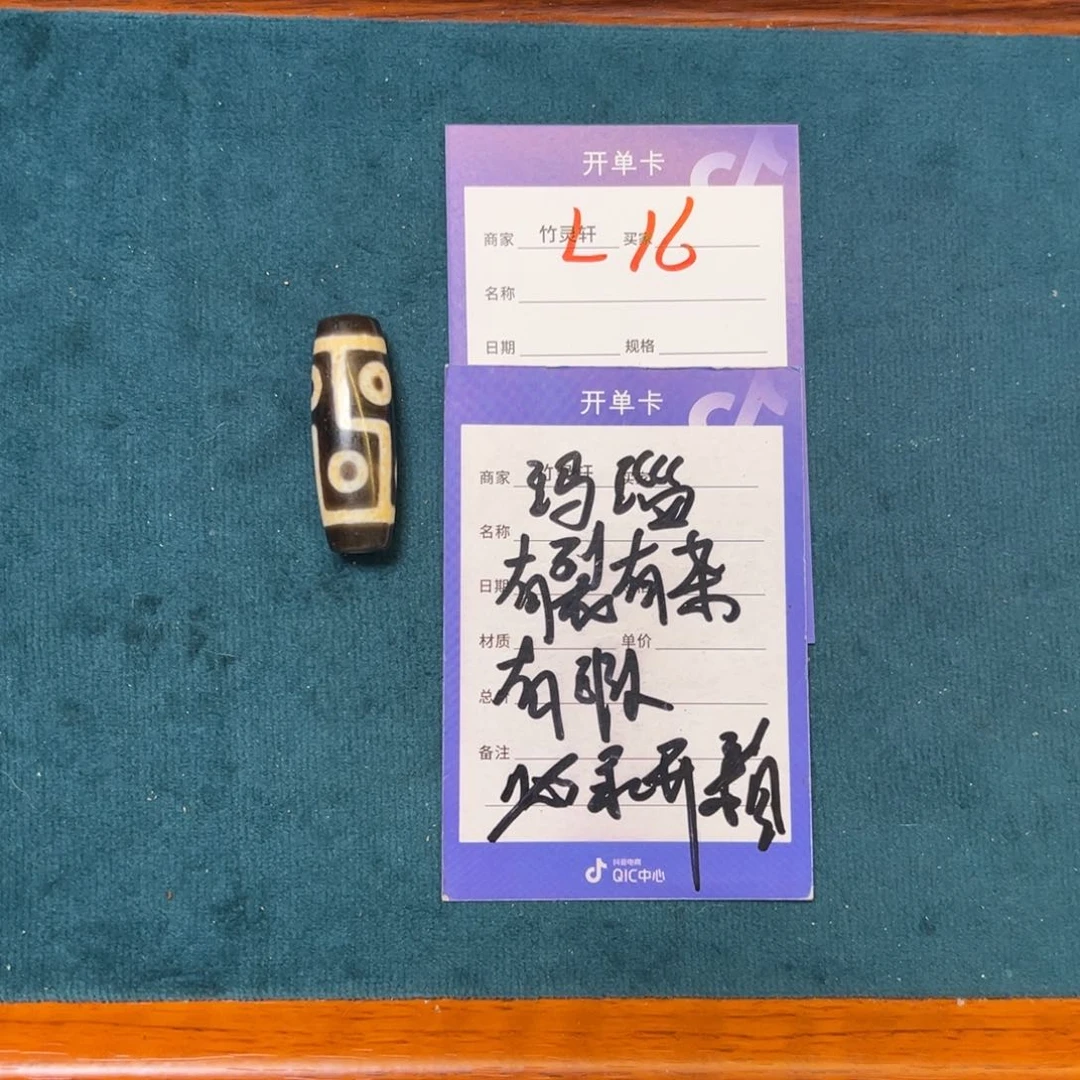 开单卡
商家 竹灵轩 买家
L 16
名称
日期 规格
开单卡
商家 竹灵轩 买家
玛瑙
名称
有裂有杂
日期
材质 单价
有瑕
备注
抖音电商
QIC中心